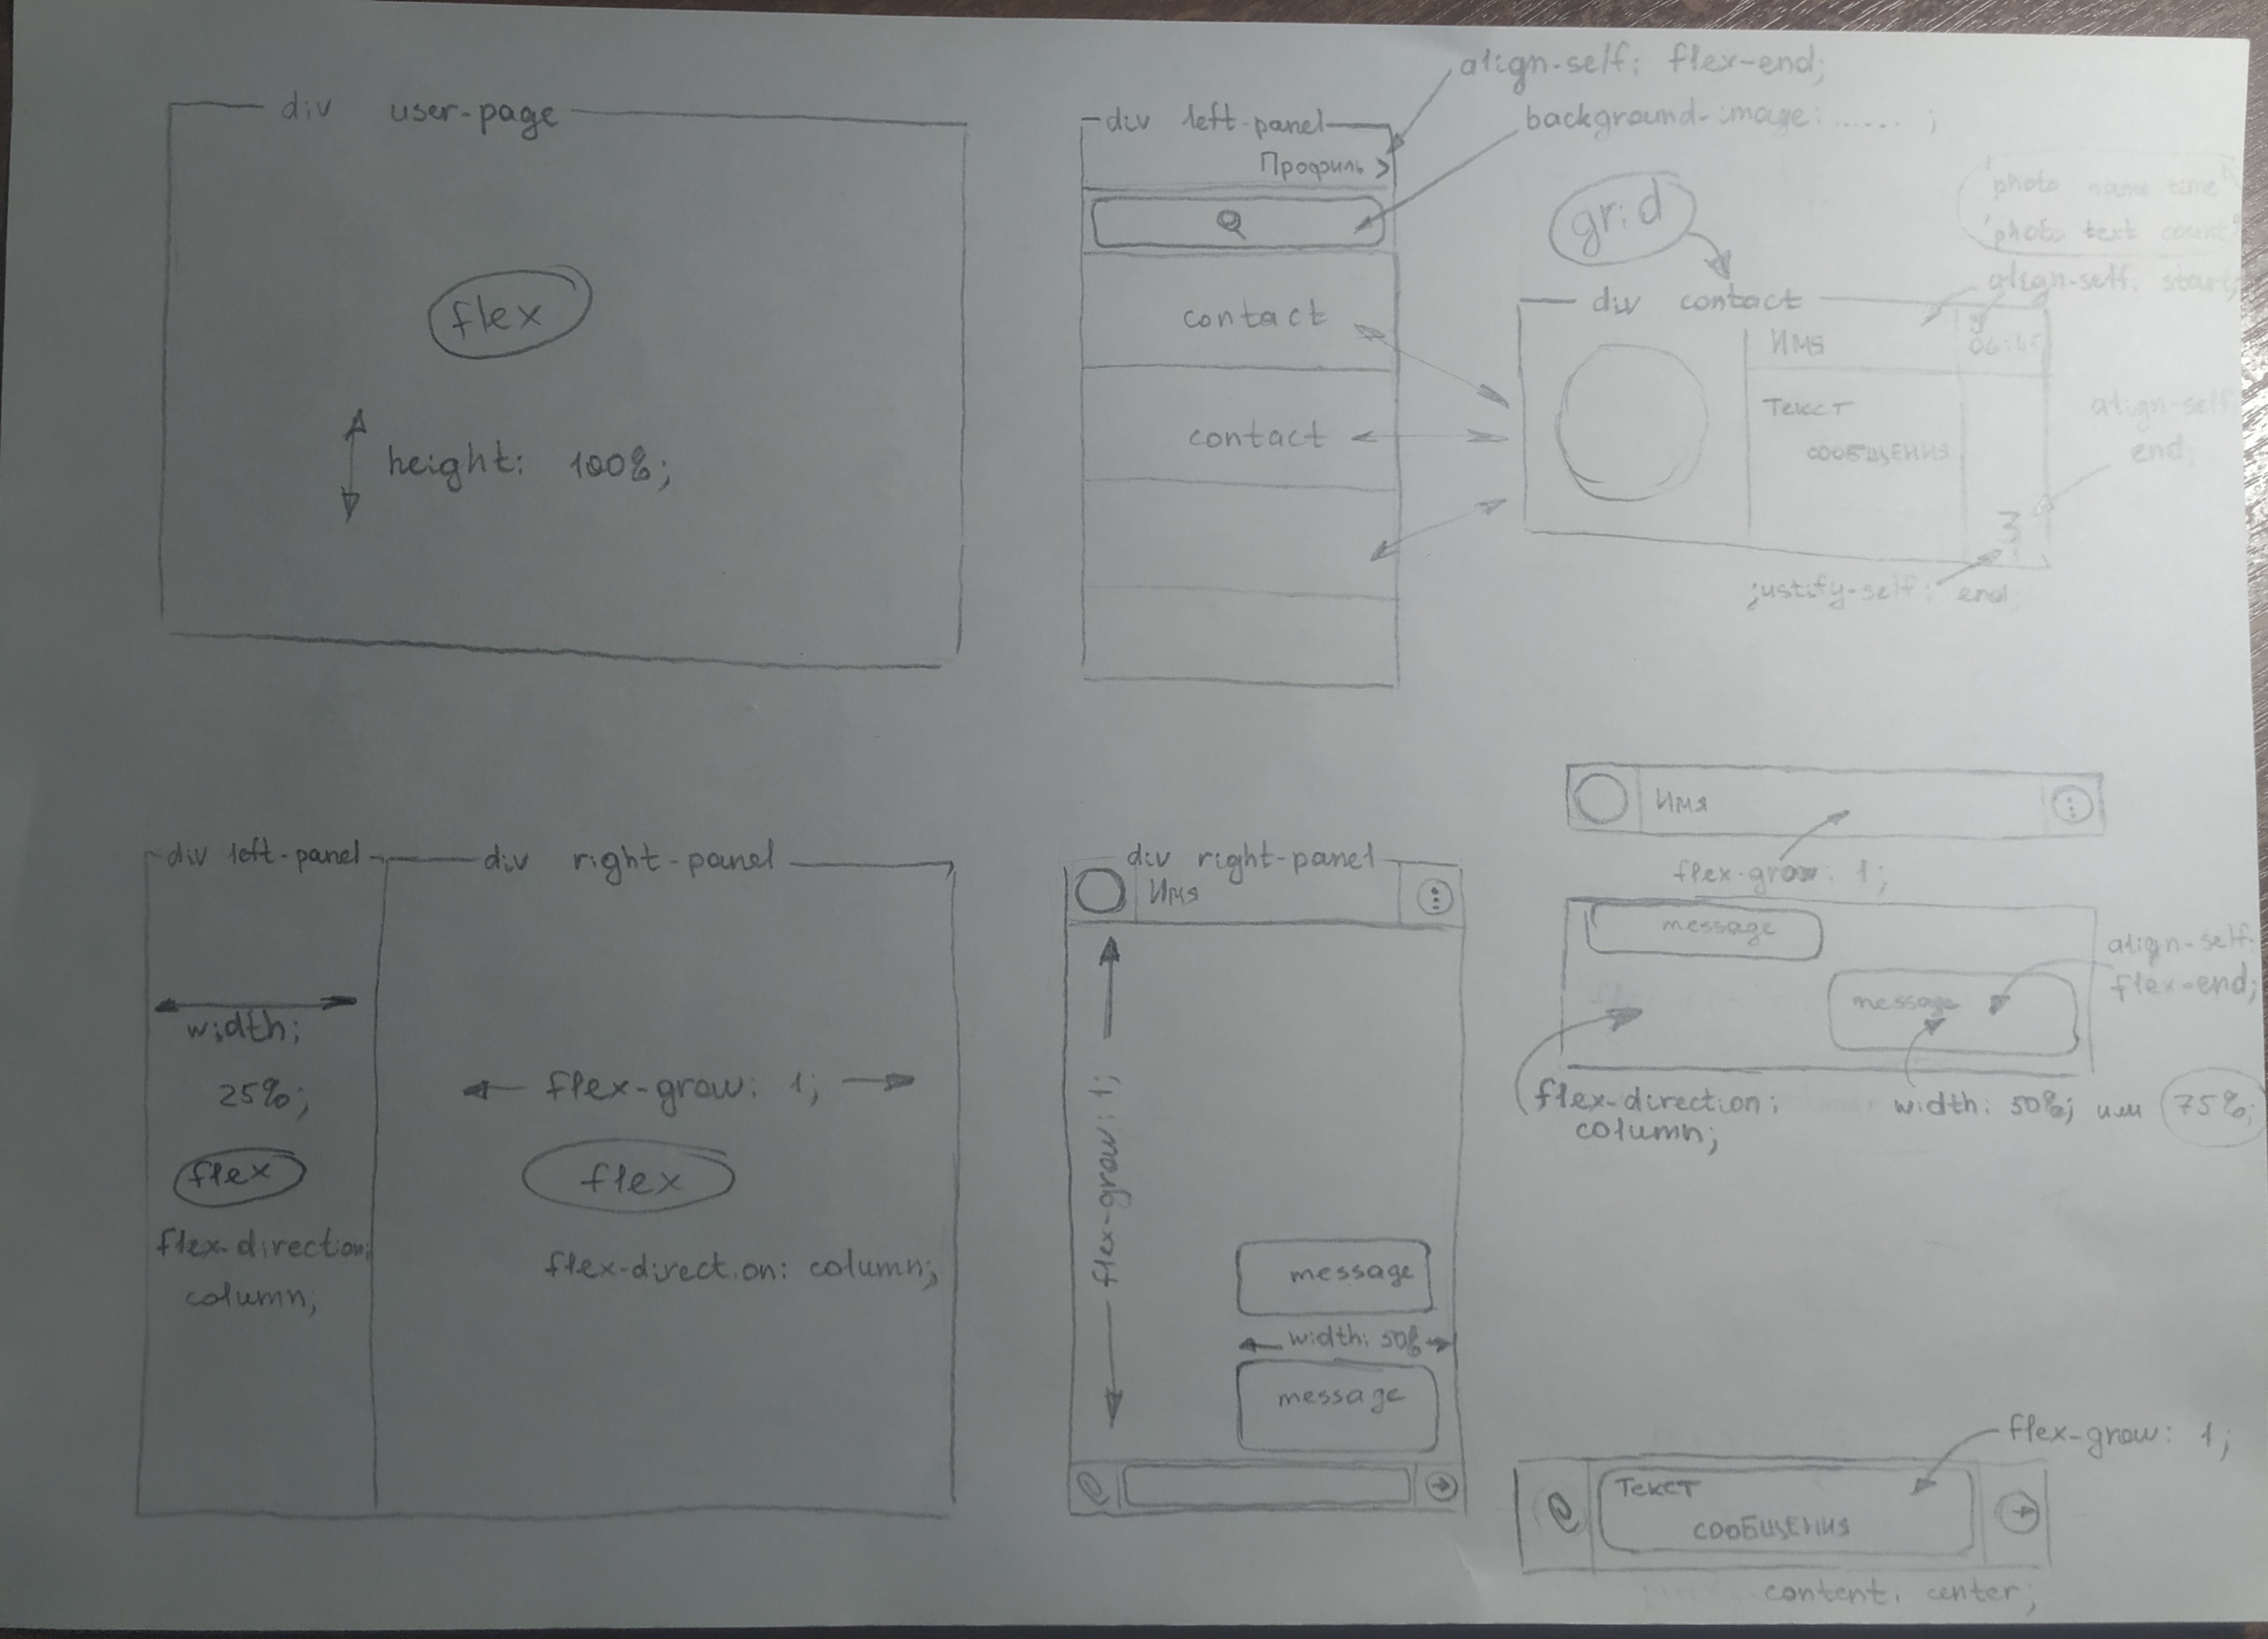 div user-page
flex
height: 100%;
align-self: flex-end;
background-image: ...... ;
div left-panel
Профиль >
contact
contact
grid
'photo name time'
'photo text count'
align-self: start;
div contact
Имя
06:45
Текст
сообщения
3
align-self:
end;
justify-self: end;
div left-panel
width:
25%;
flex
flex-direction:
column;
div right-panel
flex-grow: 1;
flex
flex-direction: column;
div right-panel
Имя
flex-grow: 1;
message
width: 50%
message
Имя
flex-grow: 1;
message
message
align-self:
flex-end;
flex-direction:
column;
width: 50%; или 75%;
flex-grow: 1;
Текст
сообщения
content: center;